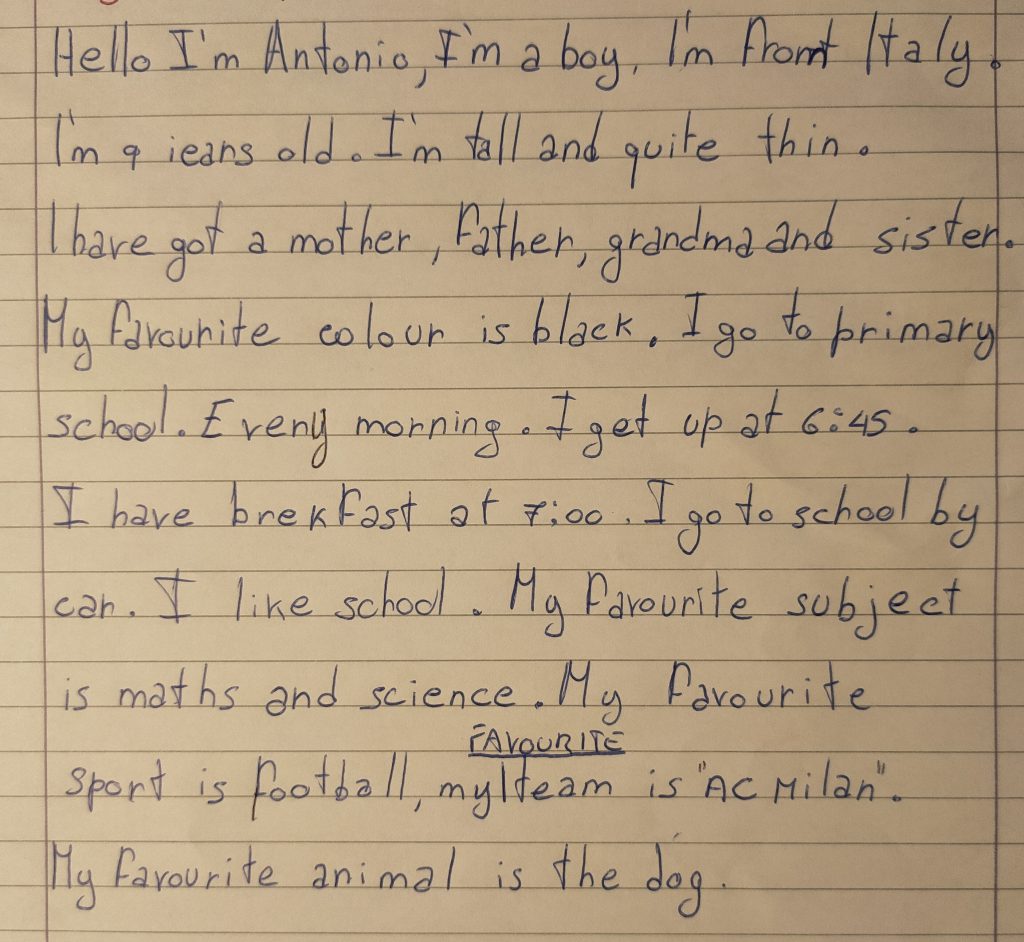 Hello I'm Antonio, I'm a boy, I'm from Italy.
I'm 9 iears old. I'm tall and quite thin.
I have got a mother, father, grandma and sister.
My favourite colour is black. I go to primary
school. Every morning. I get up at 6:45.
I have brekfast at 7:00. I go to school by
car. I like school. My favourite subject
is maths and science. My favourite
FAVOURITE
sport is football, my team is "AC Milan".
My favourite animal is the dog.